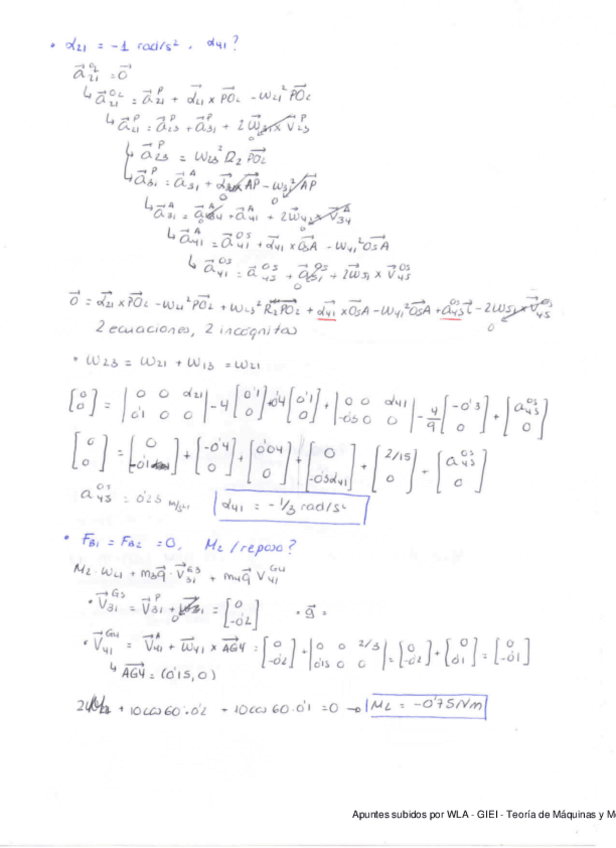 • α₂₁ = -1 rad/s², α₄₁?
a₂₁^O₂ = 0
↳ a₂₁^O₂ = a₂₁^P + α₂₁ × PO₂ - ω₂₁² PO₂
↳ a₂₁^P = a₂₃^P + a₃₁^P + 2ω₃₁ × V₂₃^P
0
↳ a₂₃^P = ω₂₃² R₂ PO₂
↳ a₃₁^P = a₃₁^A + α₃₁ × AP - ω₃₁² AP
0 0
↳ a₃₁^A = a₃₄^A + a₄₁^A + 2ω₄₁ × V₃₄^A
↳ a₄₁^A = a₄₁^O₅ + α₄₁ × O₅A - ω₄₁² O₅A
↳ a₄₁^O₅ = a₄₅^O₅ + a₅₁^O₅ + 2ω₅₁ × V₄₅^O₅
0
0 = α₂₁ × PO₂ - ω₂₁² PO₂ + ω₂₃² R₂ PO₂ + α₄₁ × O₅A - ω₄₁² O₅A + a₄₅^O₅ - 2ω₅₁ × V₄₅^O₅
0
2 ecuaciones, 2 incógnitas
• ω₂₃ = ω₂₁ + ω₁₃ = ω₂₁
[0 0] = |0 0 α₂₁ 0'1 0 0| - 4 [0'1 0] + 0'4 [0'1 0] + |0 0 α₄₁ -0'3 0 0| - 4/9 [-0'3 0] + [a₄₅^O₅ 0]
[0 0] = [0 -0'1] + [-0'4 0] + [0'04 0] + [0 -0'3α₄₁] + [2/15 0] + [a₄₅^O₅ 0]
a₄₅^O₅ = 0'23 m/s² α₄₁ = -1/3 rad/s²
• F_B1 = F_B2 = 0, M₂/reposo?
M₂·ω₂₁ + m₃g·V₃₁^G3 + m₄g V₄₁^G4
• V₃₁^G3 = V₃₁^P = [0 -0'2] • g =
0
• V₄₁^G4 = V₄₁^A + ω₄₁ × AG4 = [0 -0'2] + |0 0 2/3 0'15 0 0| = [0 -0'2] + [0 0'1] = [0 -0'1]
↳ AG4 = (0'15, 0)
2M₂ + 10cos60·0'2 + 10cos60·0'1 = 0 → M₂ = -0'75Nm
Apuntes subidos por WLA - GIEI - Teoría de Máquinas y M